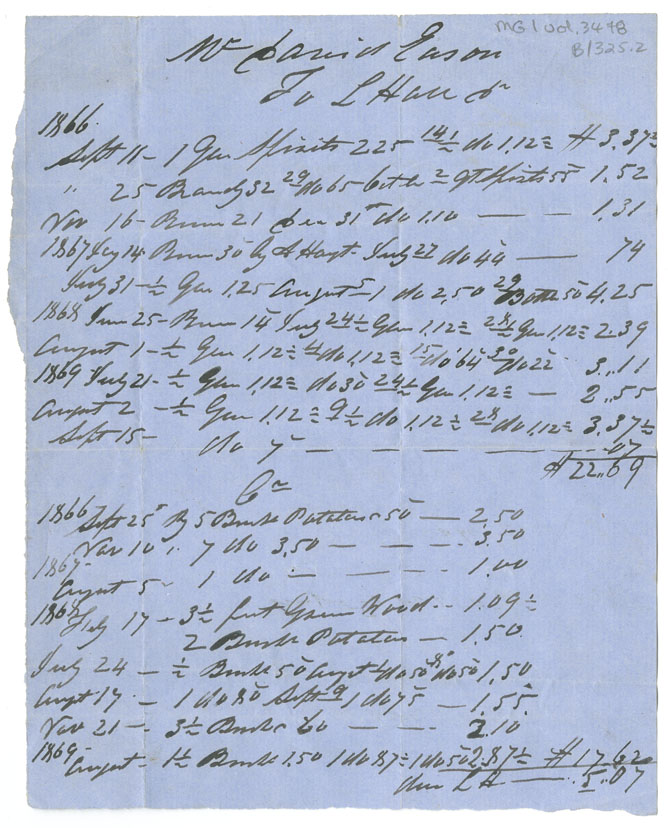 MG 1 vol. 3478
B/325.2
Mr David Eason
To L Hall Dr
1866
Sept 11 - 1 Gan Spirits 225 14 ½ do 1,12½ $ 3.37½
" 25 Brandy 32 29 do 65 2 qt Spirits 55 1.52
Nov 16 - Rum 21 Dec 31st do 1.10 — — 1.31
1867 14 Rum 30 by A Hoyt - July 27 do 44 — 74
July 31 - ½ Gan 1,25 August 5 - 1 do 2,50 29 Bottle 50 4.25
1868 Jun 25 - Rum 14 July 24 ½ Gan 1,12½ 28 ½ Gan 1,12½ 2.39
August 1 - ½ Gan 1,12½ 4 do 1,12½ 15 do 64 30 do 22 3..11
1869 July 21 - ½ Gan 1,12½ do 30 24 ½ Gan 1,12½ — 2..55
August 2 - ½ Gan 1.12½ 9 ½ do 1,12½ 28 do 1,12½ 3.37½
Sept 15 - do 7 — — — — — ..07
$ 22..69
Cr
1866 Sept 25 By 5 Bush Potatoes 50 — 2.50
Nov 10 " 7 do 3.50 — — — 3.50
1867
August 5 - 1 do — — — 1.00
1868 July 17 - 3½ feet Green Wood .. 1.09½
2 Bush Potatoes — 1.50
July 24 — ½ Bush 50 Augt 1 do 50 8 do 50 1,50
Augt 17 - 1 do 80 Sept 9 1 do 75 — 1.55
Nov 21 - 3½ Bush 60 — — 2.10
1869 -
August - 1½ Bush 1.50 1 do 87½ 1 do 50 2.87½ $ 17.62
due L H — 5.07